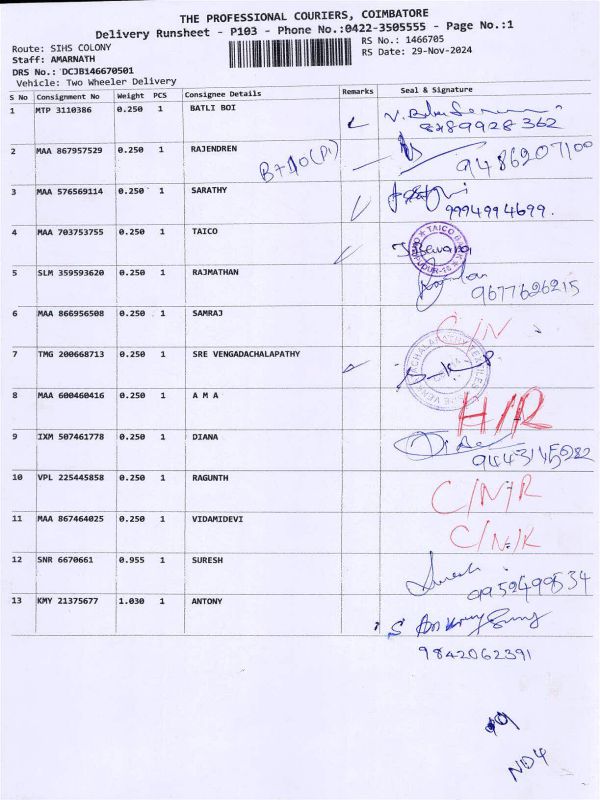 THE PROFESSIONAL COURIERS, COIMBATORE
Delivery Runsheet - P103 - Phone No.:0422-3505555 - Page No.:1
Route: SIHS COLONY
Staff: AMARNATH
DRS No.: DCJB146670501
Vehicle: Two Wheeler Delivery
RS No.: 1466705
RS Date: 29-Nov-2024
S No Consignment No Weight PCS Consignee Details Remarks Seal & Signature
1 MTP 3110386 0.250 1 BATLI BOI
8789928362
2 MAA 867957529 0.250 1 RAJENDREN
9486207100
3 MAA 576569114 0.250 1 SARATHY
9994994699.
4 MAA 703753755 0.250 1 TAICO
TAICO
5 SLM 359593620 0.250 1 RAJMATHAN
9677626215
6 MAA 866956508 0.250 1 SAMRAJ
C/N
7 TMG 200668713 0.250 1 SRE VENGADACHALAPATHY
8 MAA 600460416 0.250 1 A M A
H/R
9 IXM 507461778 0.250 1 DIANA
10 VPL 225445858 0.250 1 RAGUNTH
C/N/R
11 MAA 867464025 0.250 1 VIDAMIDEVI
12 SNR 6670661 0.955 1 SURESH
Suresh
13 KMY 21375677 1.030 1 ANTONY
9842062391